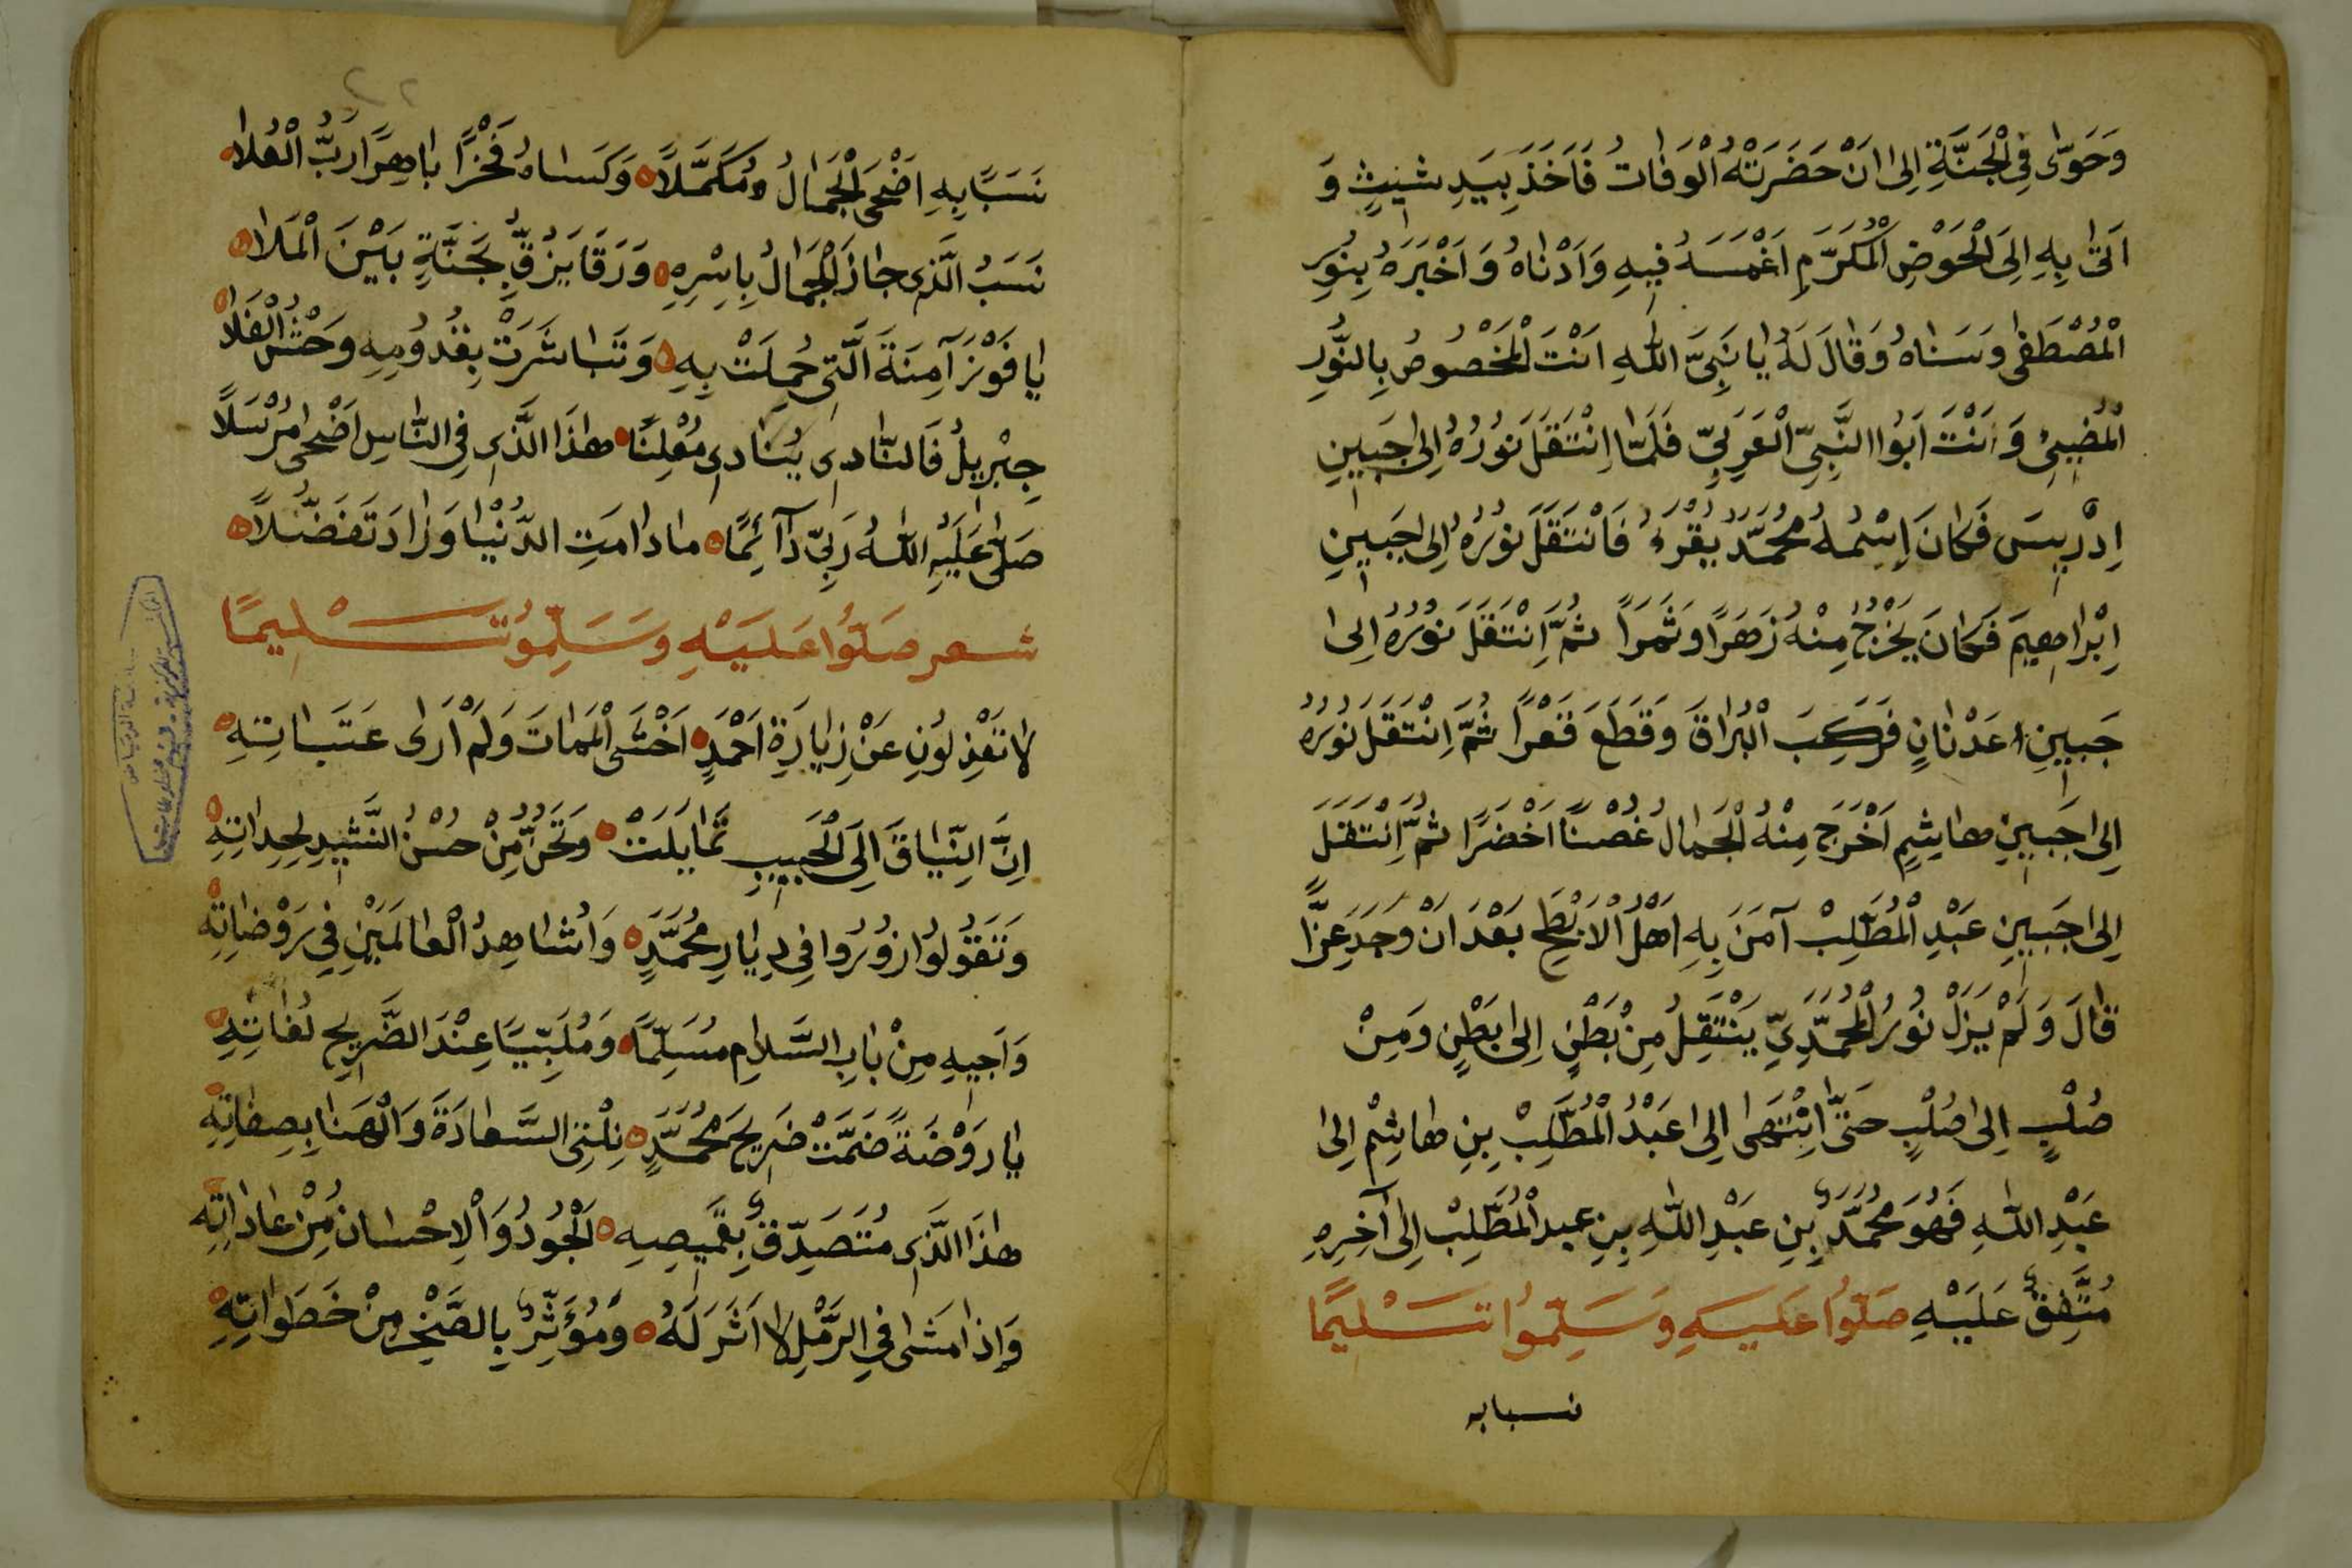 وَحَوّٰى فِى الْجَنَّةِ اِلىٰ اَنْ حَضَرَتْهُ الْوَفَاتُ فَاَخَذَ بِيَدِ شِيْثٍ وَ
اَتىٰ بِهِ اِلَى الْحَوْضِ الْمُكَرَّمِ اَغْمَسَهُ فِيهِ وَاَدْنٰاهُ وَاَخْبَرَهُ بِنُورِ
الْمُصْطَفٰى وَسَنٰاهُ وَقٰالَ لَهُ يٰا نَبِىَّ اللّٰهِ اَنْتَ الْمَخْصُوصُ بِالنُّورِ
الْمُضِيئِ وَاَنْتَ اَبُوا النَّبِىِّ الْعَرَبِىِّ فَلَمَّا اِنْتَقَلَ نُورُهُ اِلىٰ جَبِينِ
اِدْرِيسَ فَكٰانَ اِسْمُهُ مُحَمَّدُ يُقْرَءُ فَانْتَقَلَ نُورُهُ اِلىٰ جَبِينِ
اِبْرٰاهِيمَ فَكٰانَ يَخْرُجُ مِنْهُ زَهَرًا وَثَمَرًا ثُمَّ اِنْتَقَلَ نُورُهُ اِلىٰ
جَبِينِ عَدْنٰانٍ فَرَكِبَ الْبُرَاقَ وَقَطَعَ قَفْرًا ثُمَّ اِنْتَقَلَ نُورُهُ
اِلىٰ جَبِينِ هٰاشِمٍ اَخْرَجَ مِنْهُ الْجَمٰالُ غُصْنًا اَخْضَرًا ثُمَّ اِنْتَقَلَ
اِلىٰ جَبِينِ عَبْدِ الْمُطَّلِبْ آمَنَ بِهِ اَهْلُ الْاَبْطَحِ بَعْدَ اَنْ وَجَدَ عِزًّا
قٰالَ وَلَمْ يَزَلْ نُورُ الْمُحَمَّدِىِّ يَنْتَقِلُ مِنْ بَطْنٍ اِلىٰ بَطْنٍ وَمِنْ
صُلْبٍ اِلىٰ صُلْبٍ حَتّٰى اِنْتَهىٰ اِلىٰ عَبْدُ الْمُطَّلِبْ بِنِ هٰاشِمْ اِلىٰ
عَبْدِ اللّٰهِ فَهُوَ مُحَمَّدٌ بِنِ عَبْدِ اللّٰهِ بِنِ عبد الْمُطَّلِبْ اِلىٰ آخِرِهِ
مُتَّفِقٌ عَلَيْهِ صَلُّوا عَلَيْهِ وَسَلِّمُوا تَسْلِيمًا
نسبا به
نَسَبًا بِهِ اَضْحَى الْجَمَالُ مُكَمَّلًا وَكَسٰاهُ فَخْرًا بٰاهِرًا رَبُّ الْعُلٰا
نَسَبُ الَّذِى حٰازَ الْجَمَالُ بِاسْرِهِ وَرَقَا يَزُفِّ بِجَنَّةِ بَيْنَ الْمَلٰا
يٰا فَوْزَ آمِنَةَ الَّتِى حُمِلَتْ بِهِ وَتَبٰاشَرَتْ بِقُدُومِهِ وَحْشُ الْفَلٰا
جِبْرِيلُ فَالنّٰادِى يُنٰادِى مُعْلِنًا هٰذَا الَّذِى فِى النّٰاسِ اَضْحىٰ مُرْسَلًا
صَلّٰى عَلَيْهِ اللّٰهُ رَبِّى دَآئِمًا مٰا دٰامَتِ الدُّنْيٰا وَزٰادَ تَفَضُّلًا
شعر صَلُّوا عَلَيْهِ وَسَلِّمُو تَسْلِيمًا
لا تَعْذِلُونِ عَنْ زِيٰارَةِ اَحْمَدٍ اَخْشَى الْمَمٰاتَ وَلَمْ اَرٰى عَتَبٰاتِهِ
اِنَّ النِّيٰاقَ اِلَى الْحَبِيبِ تَمٰايَلَتْ وَتَحِنُّ مِنْ حُسْنُ النَّشِيدِ لِحِدٰاتِهِ
وَتَقُولُوا زُورُوا فِى دِيٰارِ مُحَمَّدٍ وَاُشٰاهِدُ الْعٰالَمَيْنِ فِى رَوْضٰاتِهِ
وَاَجِيهِ مِنْ بٰابِ السَّلٰامِ مُسَلِّمًا وَمُلَبِّيًا عِنْدَ الضَّرِيحِ لُغٰاتِهِ
يٰا رَوْضَةً ضَمَّتْ ضَرِيحَ مُحَمَّدٍ نِلْتِى السَّعٰادَةَ وَالْهَنٰا بِصِفٰاتِهِ
هٰذَا الَّذِى مُتَصَدِّقٌ بِقَمِيصِهِ الْجُودُ وَالْاِحْسٰانُ مِنْ عٰادٰاتِهِ
وَاِذٰا مَشٰى فِى الرَّمْلِ لٰا اَثَرَ لَهُ وَمُؤَثِّرٌ بِالصَّخْرِ مِنْ خَطَوٰاتِهِ